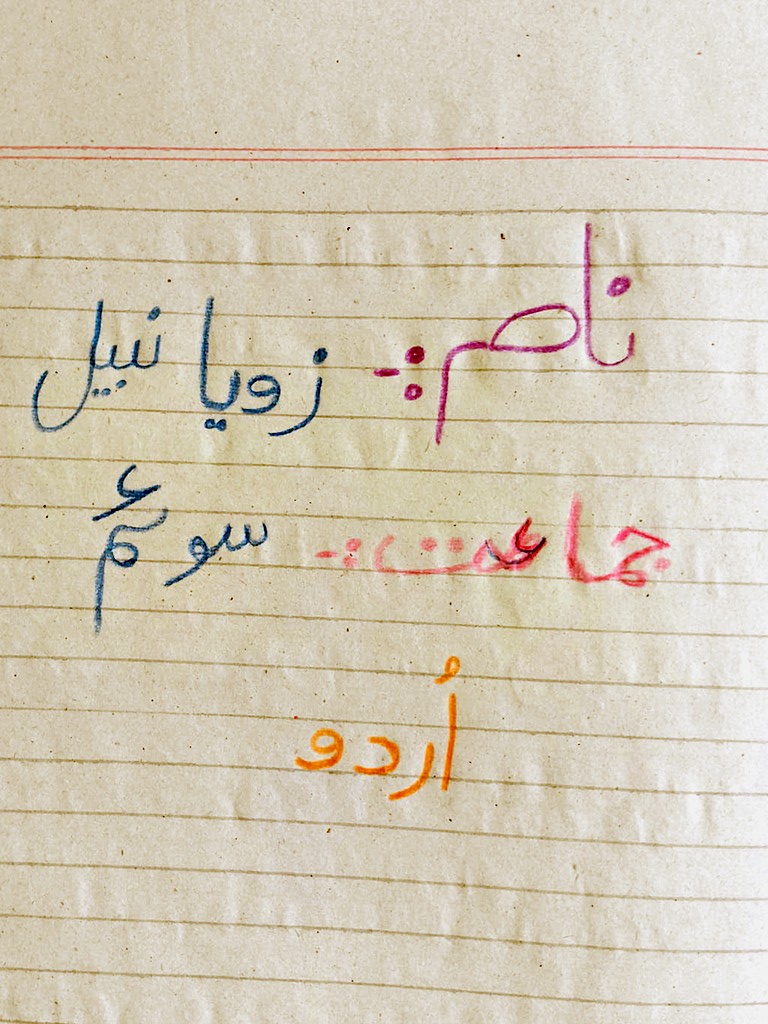 ناصم:- زویا نبیل
جماعت:- سوئم
اُردو